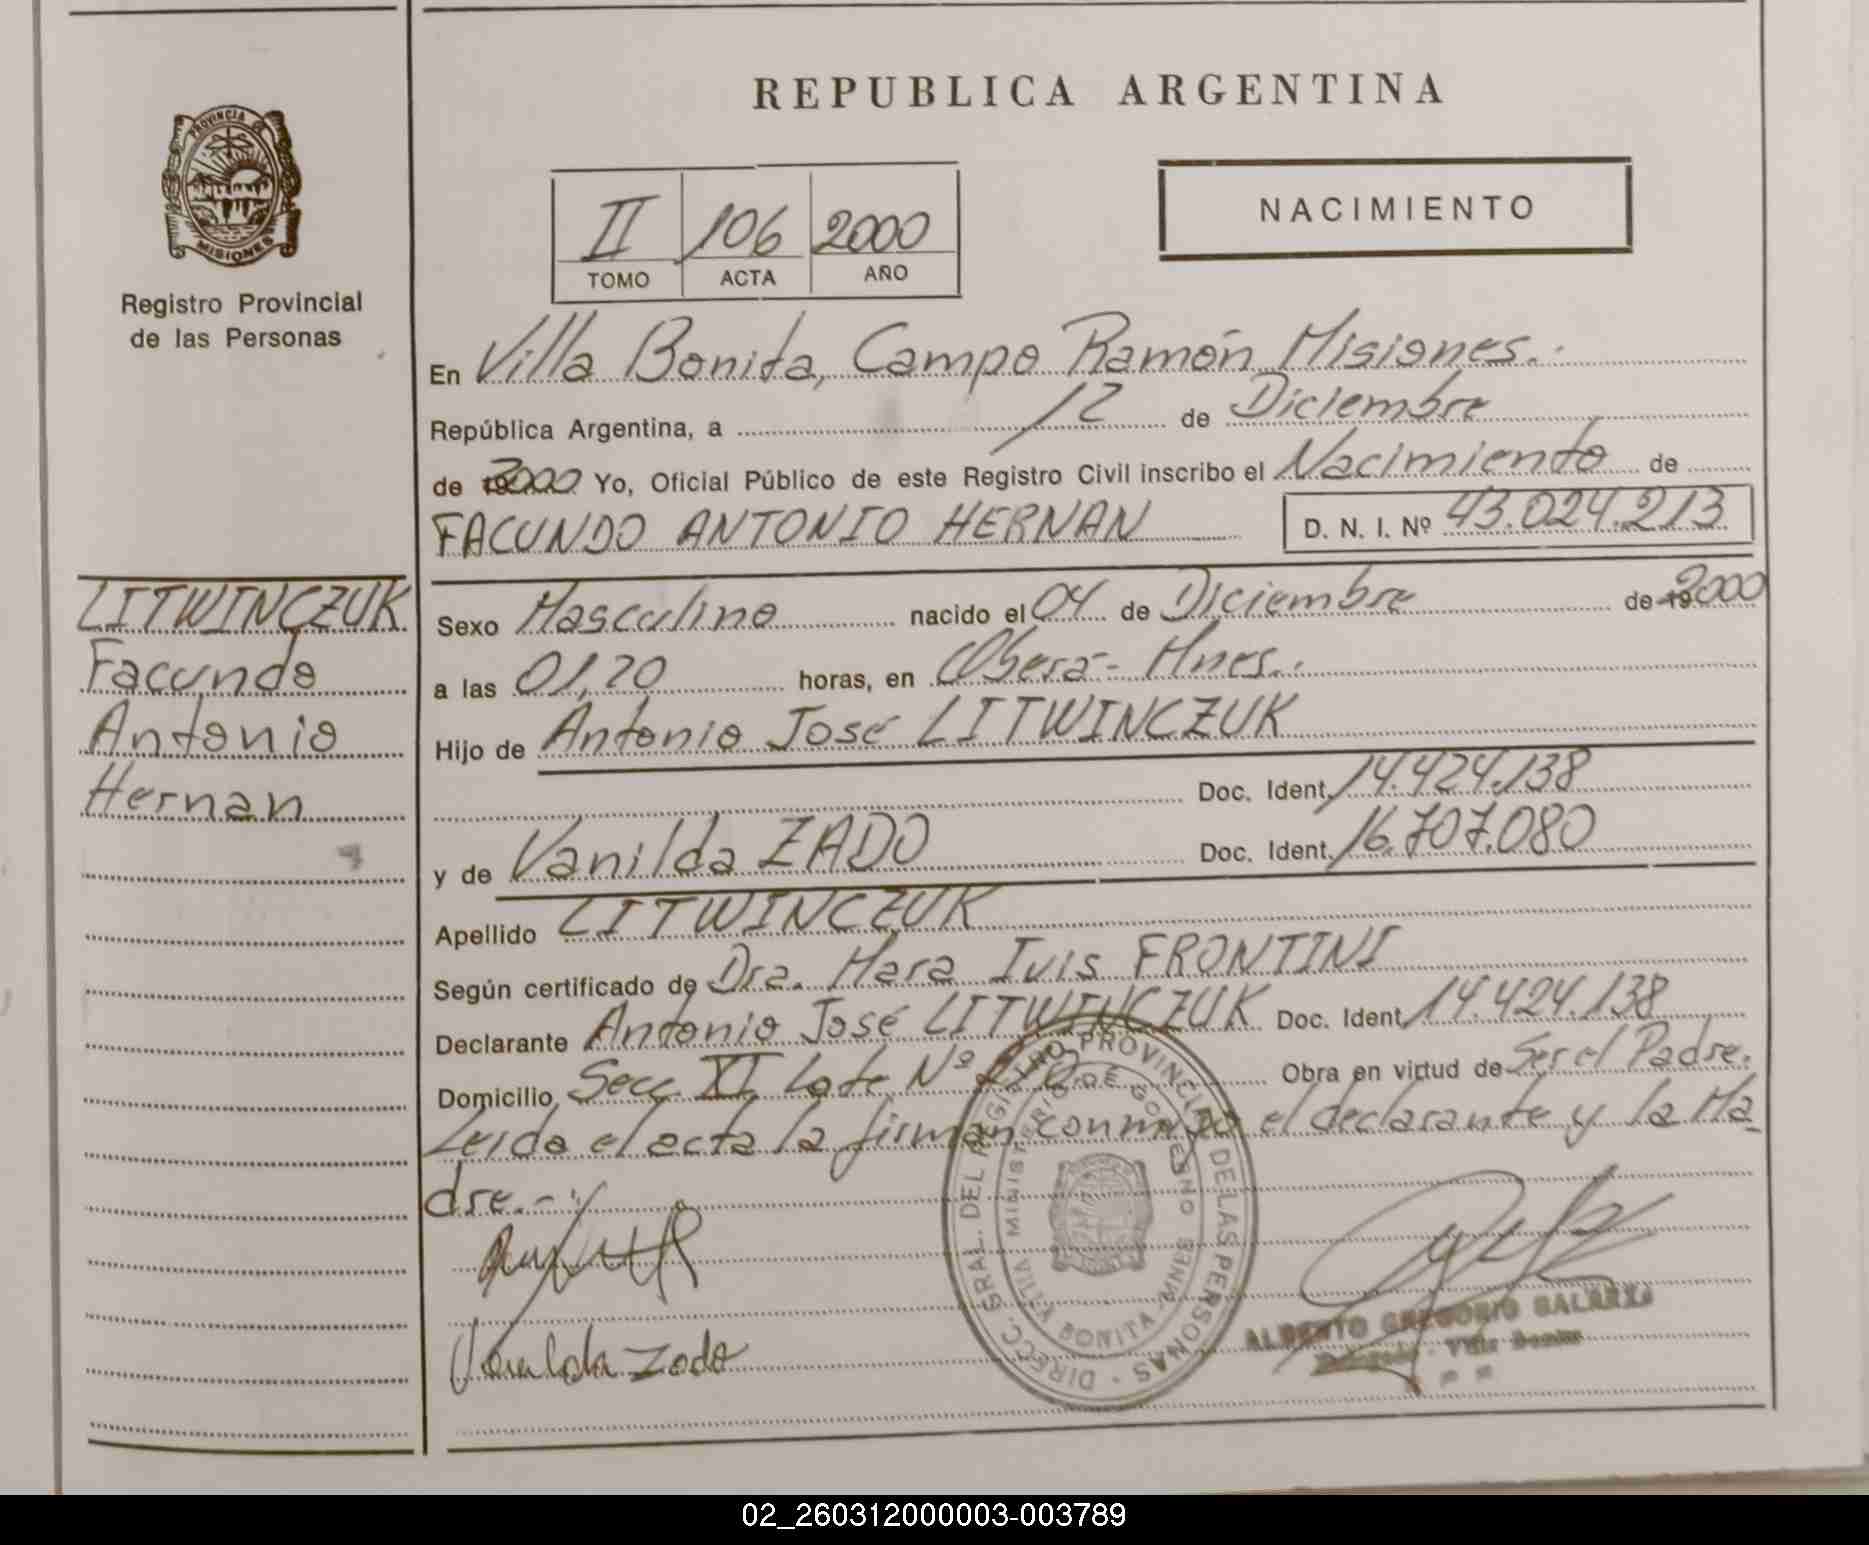 REPUBLICA ARGENTINA
PROVINCIA DE
MISIONES
Registro Provincial
de las Personas
II 106 2000
TOMO ACTA AÑO
NACIMIENTO
En Villa Bonita, Campo Ramón Misiones.
República Argentina, a 12 de Diciembre
de 2000 Yo, Oficial Público de este Registro Civil inscribo el Nacimiento de
FACUNDO ANTONIO HERNAN D. N. I. Nº 43.024.213
LITWINCZUK
Facundo
Antonio
Hernan
Sexo Masculino nacido el 04 de Diciembre de 2000
a las 01,20 horas, en Oberá - Mnes.
Hijo de Antonio José LITWINCZUK
Doc. Ident. 14.424.138
y de Vanilda ZADO Doc. Ident. 16.707.080
Apellido LITWINCZUK
Según certificado de Dra. Mara Iuis FRONTINI
Declarante Antonio José LITWINCZUK Doc. Ident. 14.424.138
Domicilio Secc. XI Lote Nº Obra en virtud de Ser el Padre.
Leida el acta la firman conmigo el declarante y la Ma
dre.-
Vanilda Zado
DIREC. GRAL. DEL REGISTRO PROVINCIAL DE LAS PERSONAS
MINISTERIO DE GOBIERNO
VILLA BONITA - MNES
ALBERTO GREGORIO GALARZA
Delegado - Villa Bonita
02_260312000003-003789